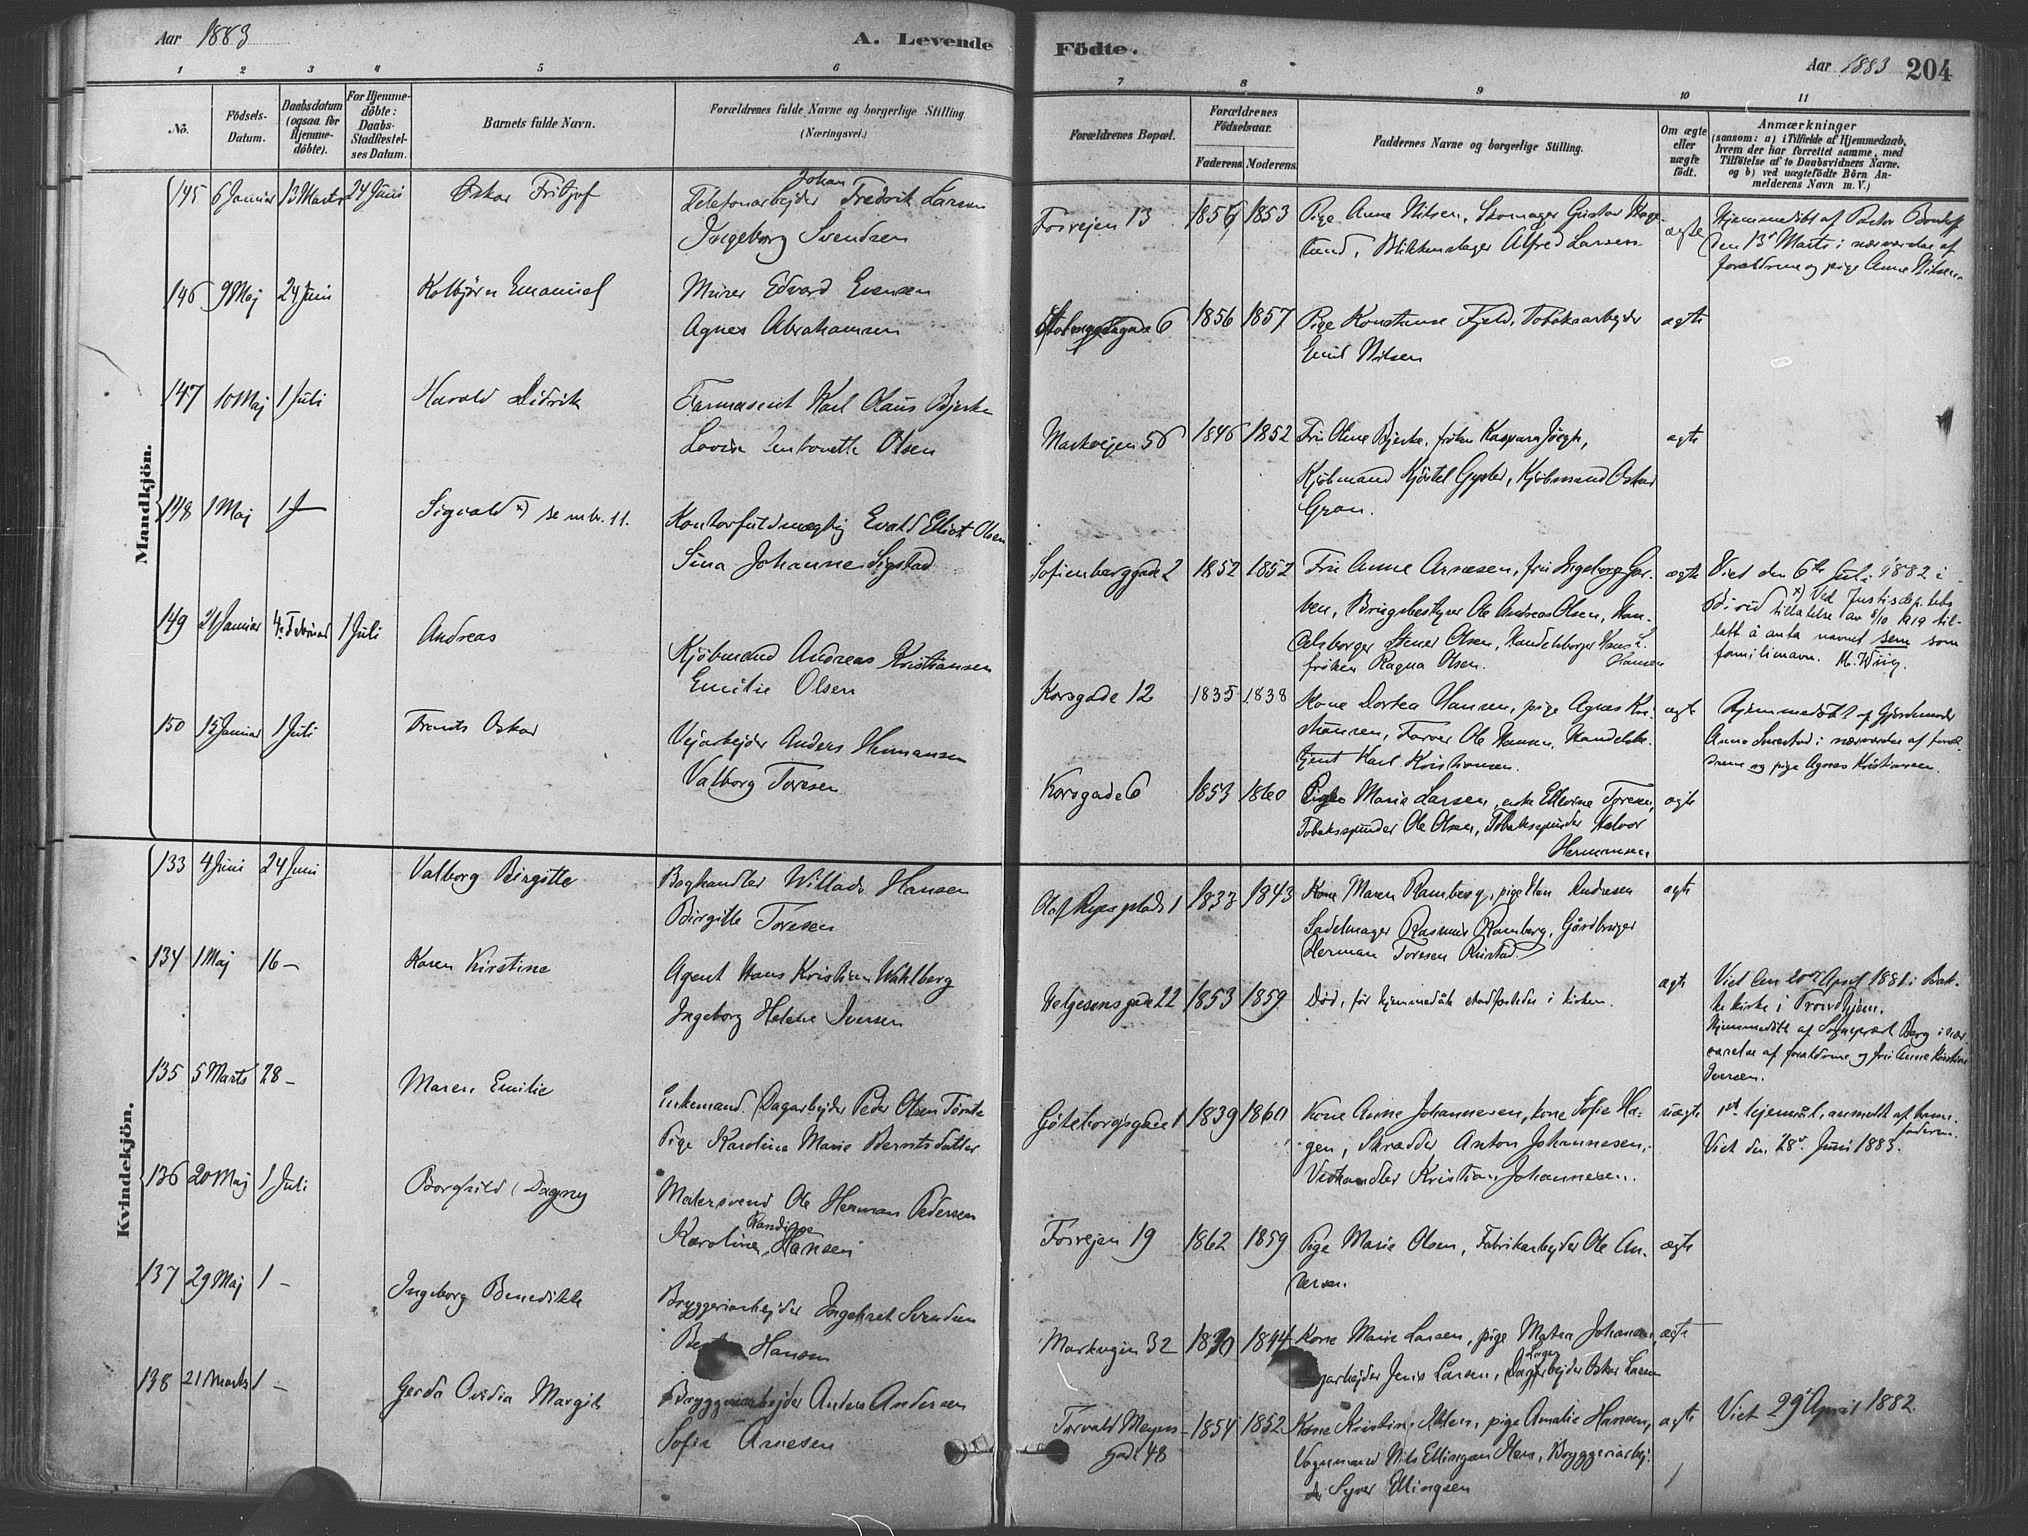 Aar 1883
A. Levende
Födte.
Aar 1883 204
1 2 3 4 5 6 7 8 9 10 11
No.
Födsels-
Datum.
Daabsdatum
(ogsaa for
Hjemme-
döbte).
For Hjemme-
döbte:
Daabs-
Stadfæstel-
ses Datum.
Barnets fulde Navn.
Forældrenes fulde Navne og borgerlige Stilling.
(Næringsvei.)
Forældrenes Bopæl.
Forældrenes
Födselsaar.
Faderens. Moderens.
Faddernes Navne og borgerlige Stilling.
Om ægte
eller
uægte
födt.
Anmærkninger
(saasom: a) i Tilfælde af Hjemmedaab,
hvem der har forrettet samme, med
Tilföielse af to Daabsvidners Navne.
og b) ved uægtefödte Börn An-
melderens Navn m. V.)
Mandkjön.
145 6 Januar 13 Marts 24 Juni Oskar Fritjof
Johan
Telefonarbejder Fredrik Larsen
Ingeborg Svendsen
Fosvejen 13 1856 1853
Pige Anne Nilsen, Skomager Gustav
lund, Blikkenslager Alfred Larsen
ægte
Hjemmedöbt af Pastor
den 13de Marts i nærværelse af
forældrene og pige Anne Nilsen.
146 9 Maj 24 Juni Kolbjörn Emanuel
Murer Edvard Evensen
Agnes Abrahamsen
6 1856 1857
Pige Konstanse Fjeld, Tobaksarbejder
Emil Nilsen
ægte
147 10 Maj 1 Juli Harald Didrik
Farmaseut Karl Olaus Bjerke
Lovise Olsen
Markvejen 56 1846 1852
Fru Oline Bjerke, fröken Kaspara
Kjöbmand Kjöstel Gyster, Kjöbmand Oskar
Gran.
ægte
148 1 Maj 1 — Sigvald x) se mrk. 11.
Kontorfuldmægtig Evald Elliot Olsen
Sina Johanne Sigstad
Sofienberggade 2 1852 1852
Fru Anne Arnesen, fru Ingeborg Gar-
ben, Brugsbestyrer Ole Andreas Olsen, Han-
delsborger Stener Olsen, Handelsborger Hans L.
Hansen
fröken Ragna Olsen.
ægte
Viet den 6te Juli 1882 i
Biri x) Ved Justisdep.tets
tillatelse av 8/10 1919 til-
latt å anta navnet Sem som
familienavn. M. Wiig.
149 21 Januar 4 Februar 1 Juli Andreas
Kjöbmand Andreas Kristiansen
Emilie Olsen
Korsgade 12 1835 1838
Kone Dortea Hansen, pige Agnes Kri-
stiansen, Farver Ole Hansen, Handelsbe-
tjent Karl Kristiansen.
ægte
Hjemmedöbt af Gjordemoder
Anna Smestad i nærværelse af foræl-
drene og pige Agnes Kristiansen.
150 15 Januar 1 Juli Frants Oskar
Vejarbejder Anders Hermansen
Valborg Toresen
Korsgade 6 1853 1860
Pige Marie Larsen, enke Elevine Toresen,
Tobaksspinder Ole Olsen, Tobaksspinder Halvor
Hermansen.
ægte
Kvindekjön.
133 4 Juni 24 Juni Valborg Birgitte
Boghandler Willads Hansen
Birgitte Toresen
Olaf Ryes plads 1 1833 1843
Kone Maren Ramberg, pige Elen Andresen
Sadelmager Rasmus Ramberg, Gårdbruger
Herman Toresen Rustad
ægte
134 1 Maj 16 — Karen Kirstine
Agent Hans Kristian Wahlberg
Ingeborg Helene Iversen
Helgesens gade 22 1853 1859
Död, för hjemmedåb stadfæstedes i kirken.
ægte
Viet den 20de April 1881 i Bak-
ke kirke i Trondhjem.
Hjemmedöbt af Sogneprest Berg i nær-
værelse af forældrene og fru Anne Kristine
Iversen.
135 5 Marts 28 — Maren Emilie
Enkemand. Dagarbejder Peder Olsen
Pige Karoline Marie Berntsdatter
Göteborgsgade 1 1839 1860
Kone Anne Johannesen, kone Sofie Ha-
gen, Skrædder Anton Johannesen,
Vedhandler Kristian Johannesen.
uægte
1ste lejermål, anmeldt af barne-
faderen.
Viet den 28de Juni 1883.
136 20 Maj 1 Juli Borghild Dagny
Malersvend Ole Herman Pedersen
Randine
Karoline Hansen
Fosvejen 19 1862 1859
Pige Marie Olsen, Fabrikarbejder Ole An-
dersen.
ægte
137 29 Maj 1 — Ingeborg Benedikte
Bryggeriarbejder Ingebret Svendsen
Hansen
Markvejen 32 1830 1844
Kone Marie Larsen, pige Matea Johansen,
Jens Larsen, Dagarbejder Oskar Larsen
ægte
138 21 Marts 1 — Gerda Ovidia Margit
Bryggeriarbejder Anders Andersen
Sofie Arnesen
Torvald Meyers
gade 48 1854 1852
Kone Kristine Olsen, pige Amalie Hansen,
Vognmand Nils Ellingsen Hen, Bryggeriarbej-
der Syver Ellingsen
ægte
Viet 29 April 1882.